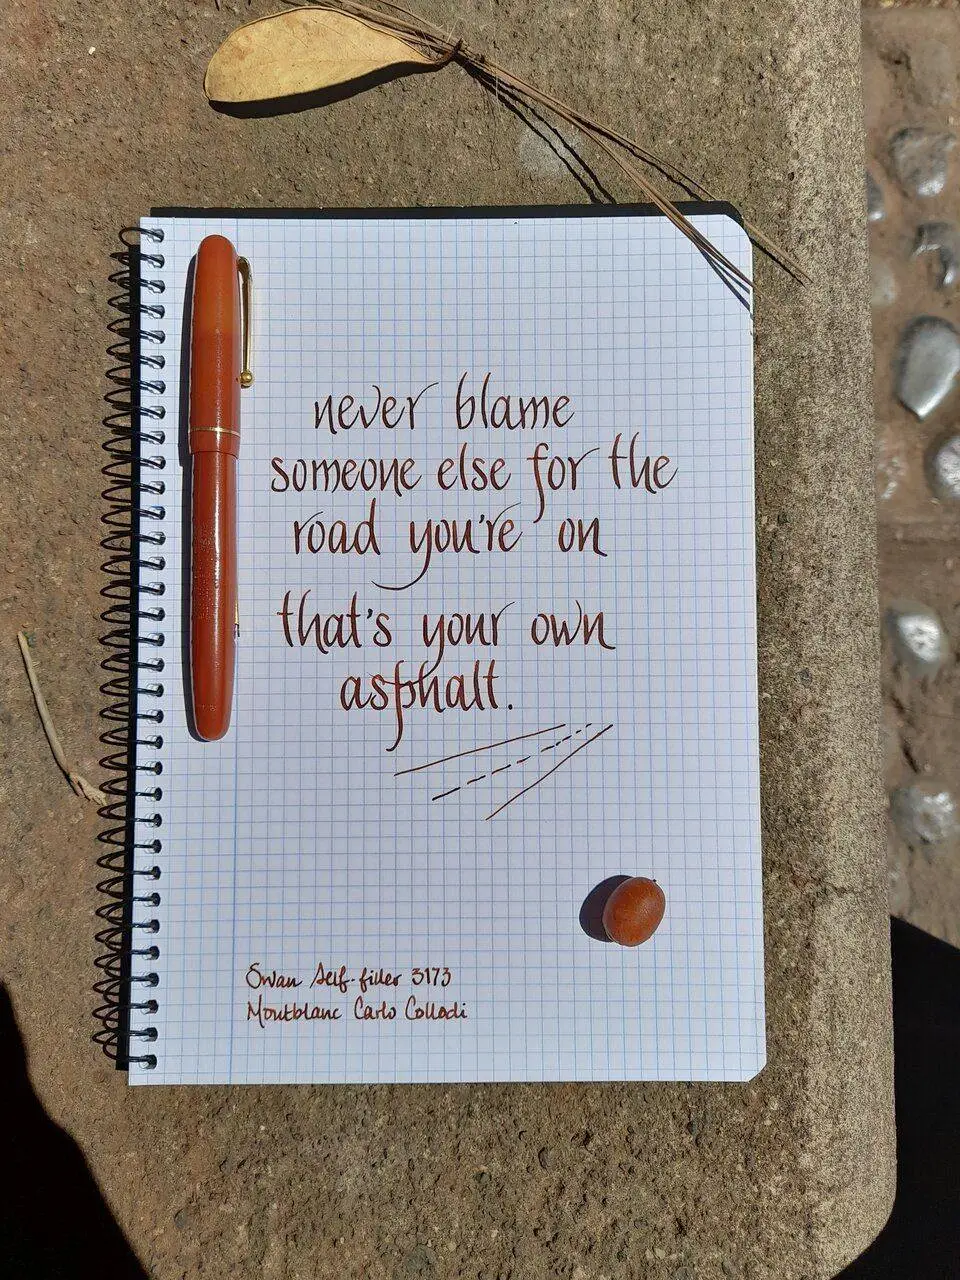 never blame
someone else for the
road you're on
that's your own
asphalt.
Swan Self-filler 3173
Montblanc Carlo Collodi